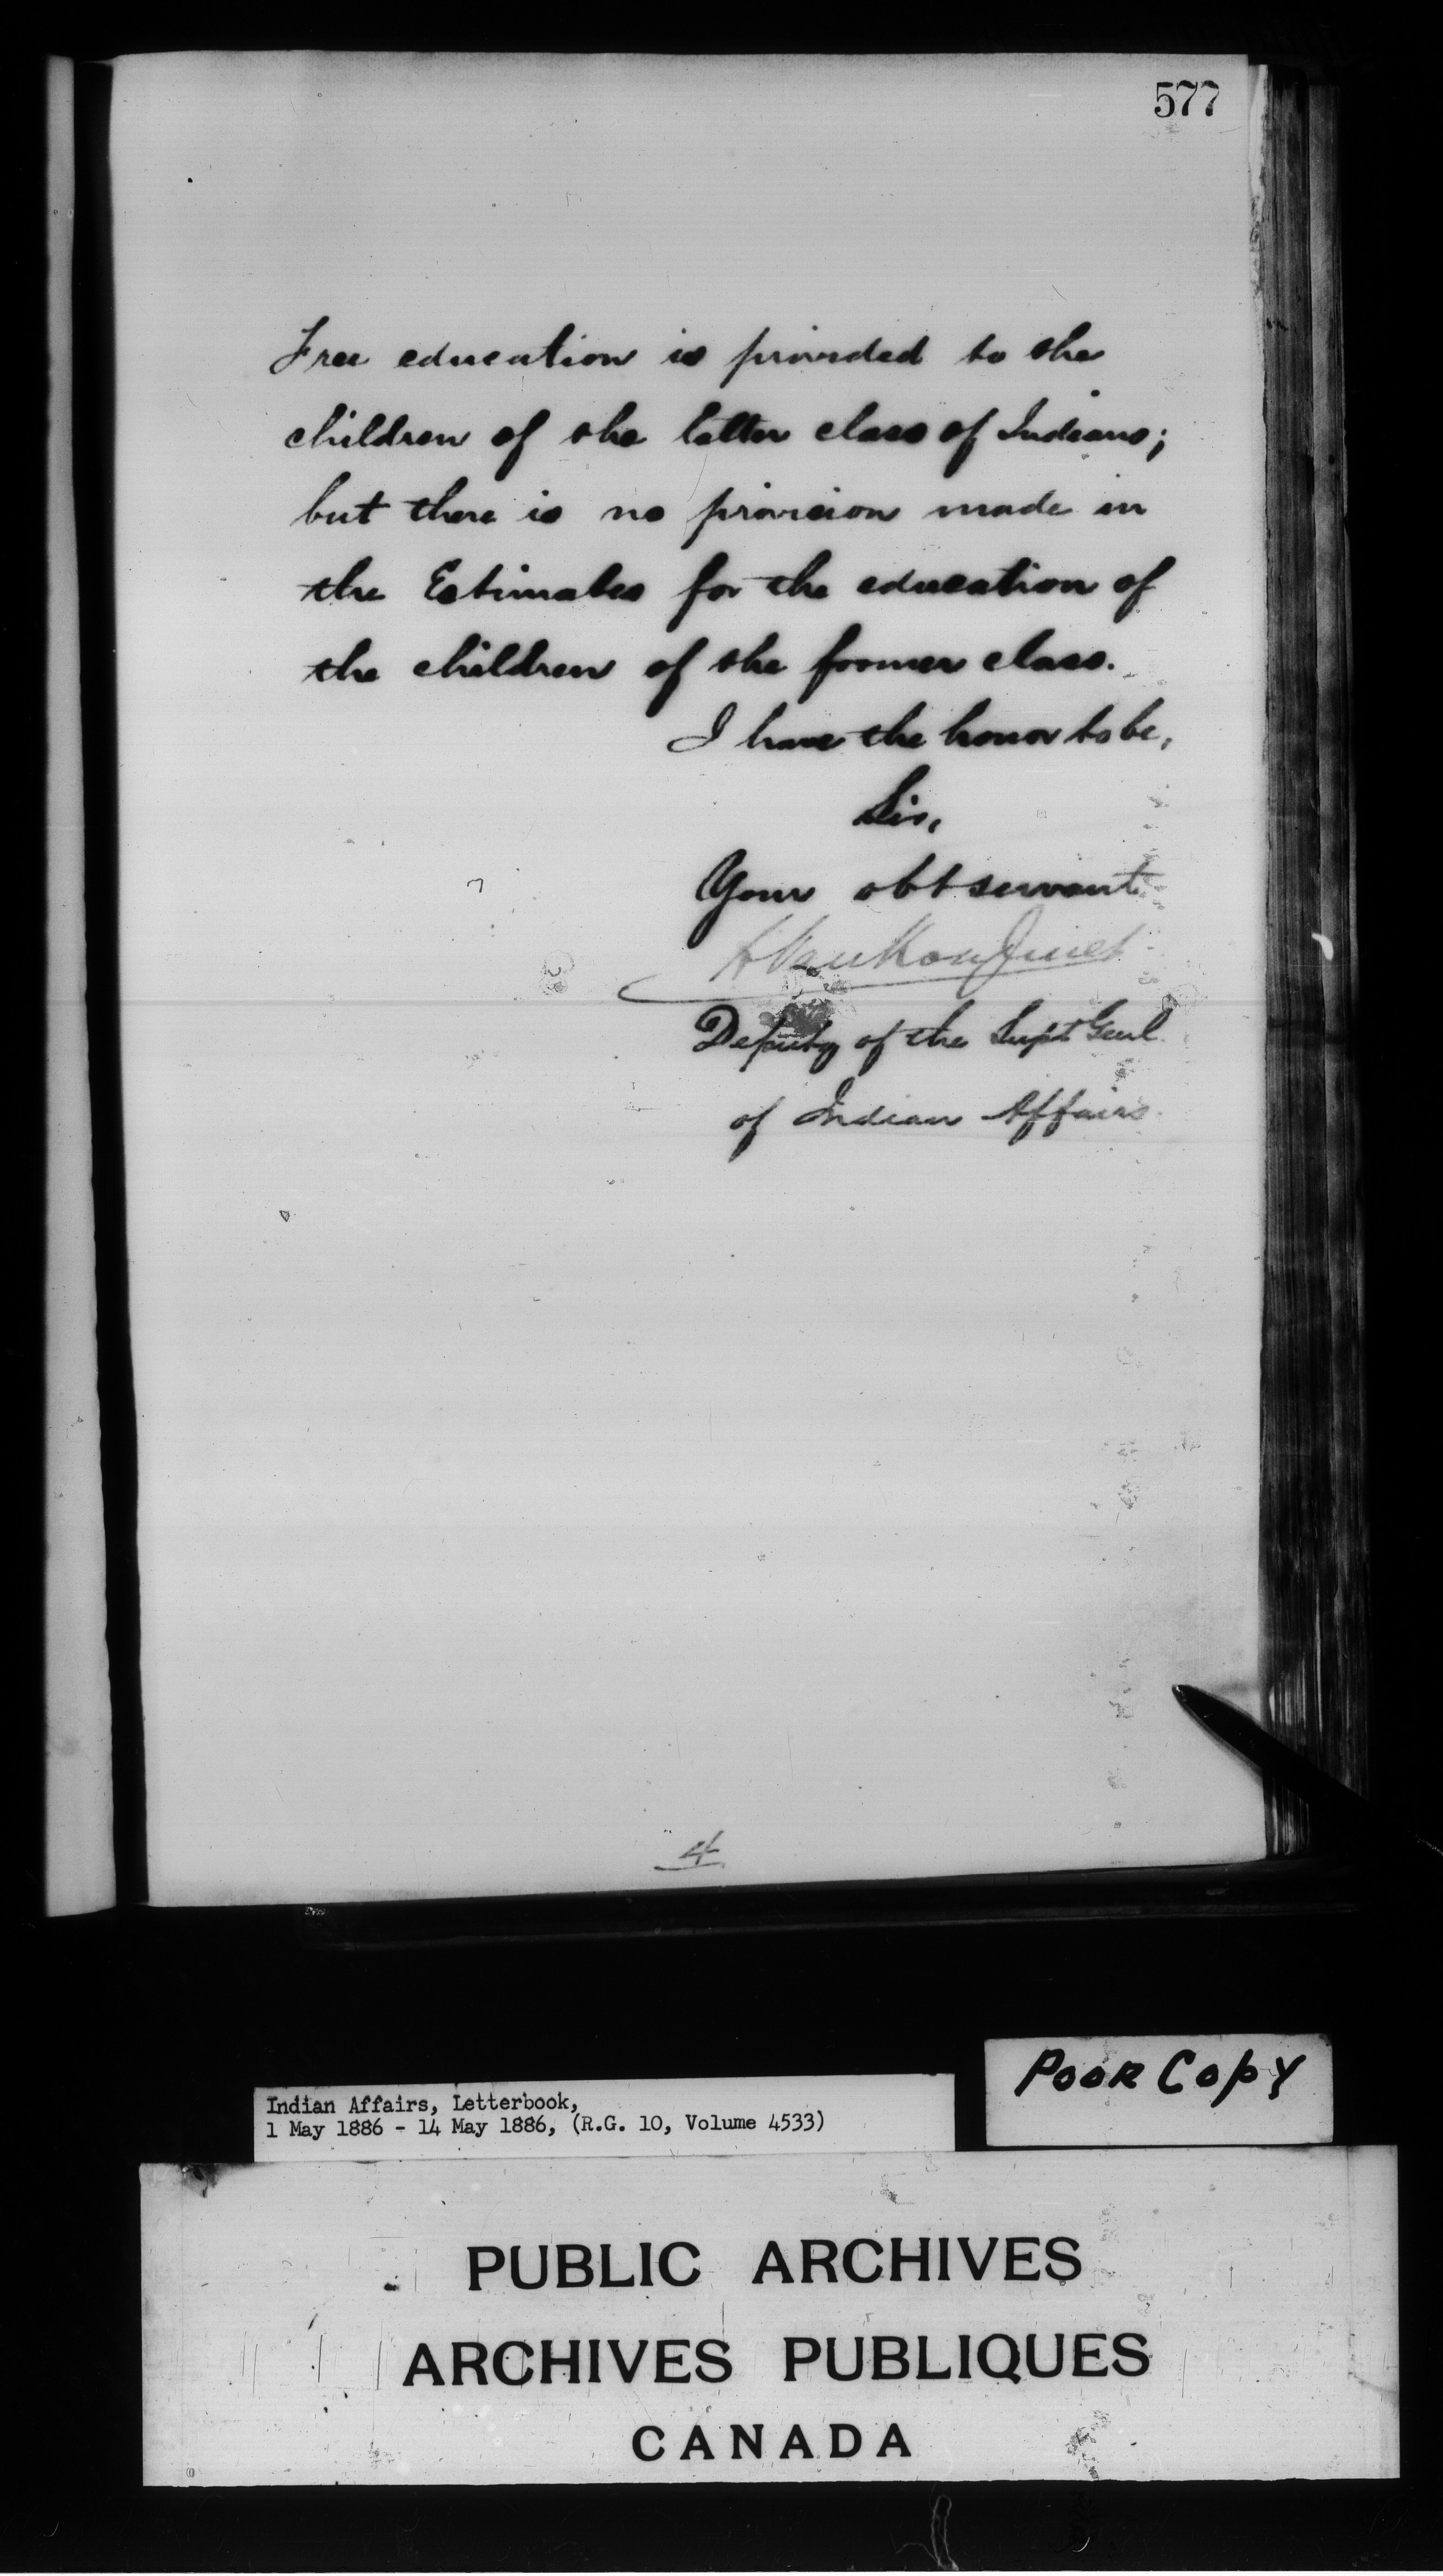 577
Free education is provided to the
children of the latter class of Indians;
but there is no provision made in
the Estimates for the education of
the children of the former class.
I have the honor to be,
Sir,
Your obt servant
L VanKoughnet
Deputy of the Supt Genl
of Indian Affairs.
4
Poor Copy
Indian Affairs, Letterbook,
1 May 1886 - 14 May 1886, (R.G. 10, Volume 4533)
PUBLIC ARCHIVES
ARCHIVES PUBLIQUES
CANADA